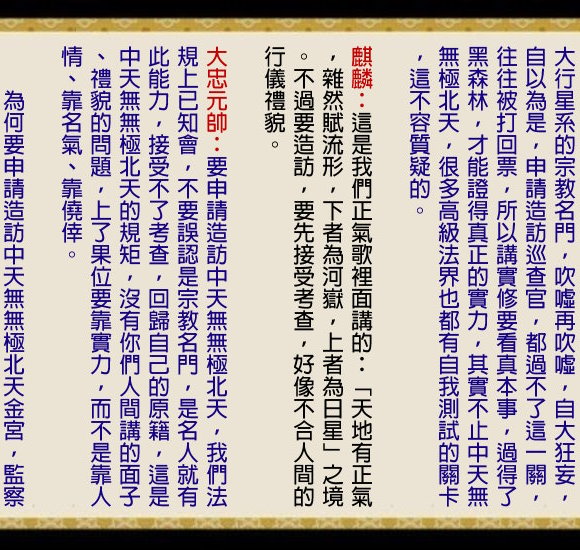 大行星系的宗教名門，吹噓再吹噓，自大狂妄，
自以為是，申請造訪巡查官，都過不了這一關，
往往被打回票，所以講實修要看真本事，過得了
黑森林，才能證得真正的實力，其實不止中天無
無極北天，很多高級法界也都有自我測試的關卡
，這不容質疑的。
麒麟：這是我們正氣歌裡面講的：「天地有正氣
，雜然賦流形，下者為河嶽，上者為日星」之境
。不過要造訪，要先接受考查，好像不合人間的
行儀禮貌。
大忠元帥：要申請造訪中天無無極北天，我們法
規上已知會，不要誤認是宗教名門，是名人就有
此能力，接受不了考查，回歸自己的原籍，這是
中天無無極北天的規矩，沒有你們人間講的面子
、禮貌的問題，上了果位要靠實力，而不是靠人
情、靠名氣、靠僥倖。
為何要申請造訪中天無無極北天金宮，監察